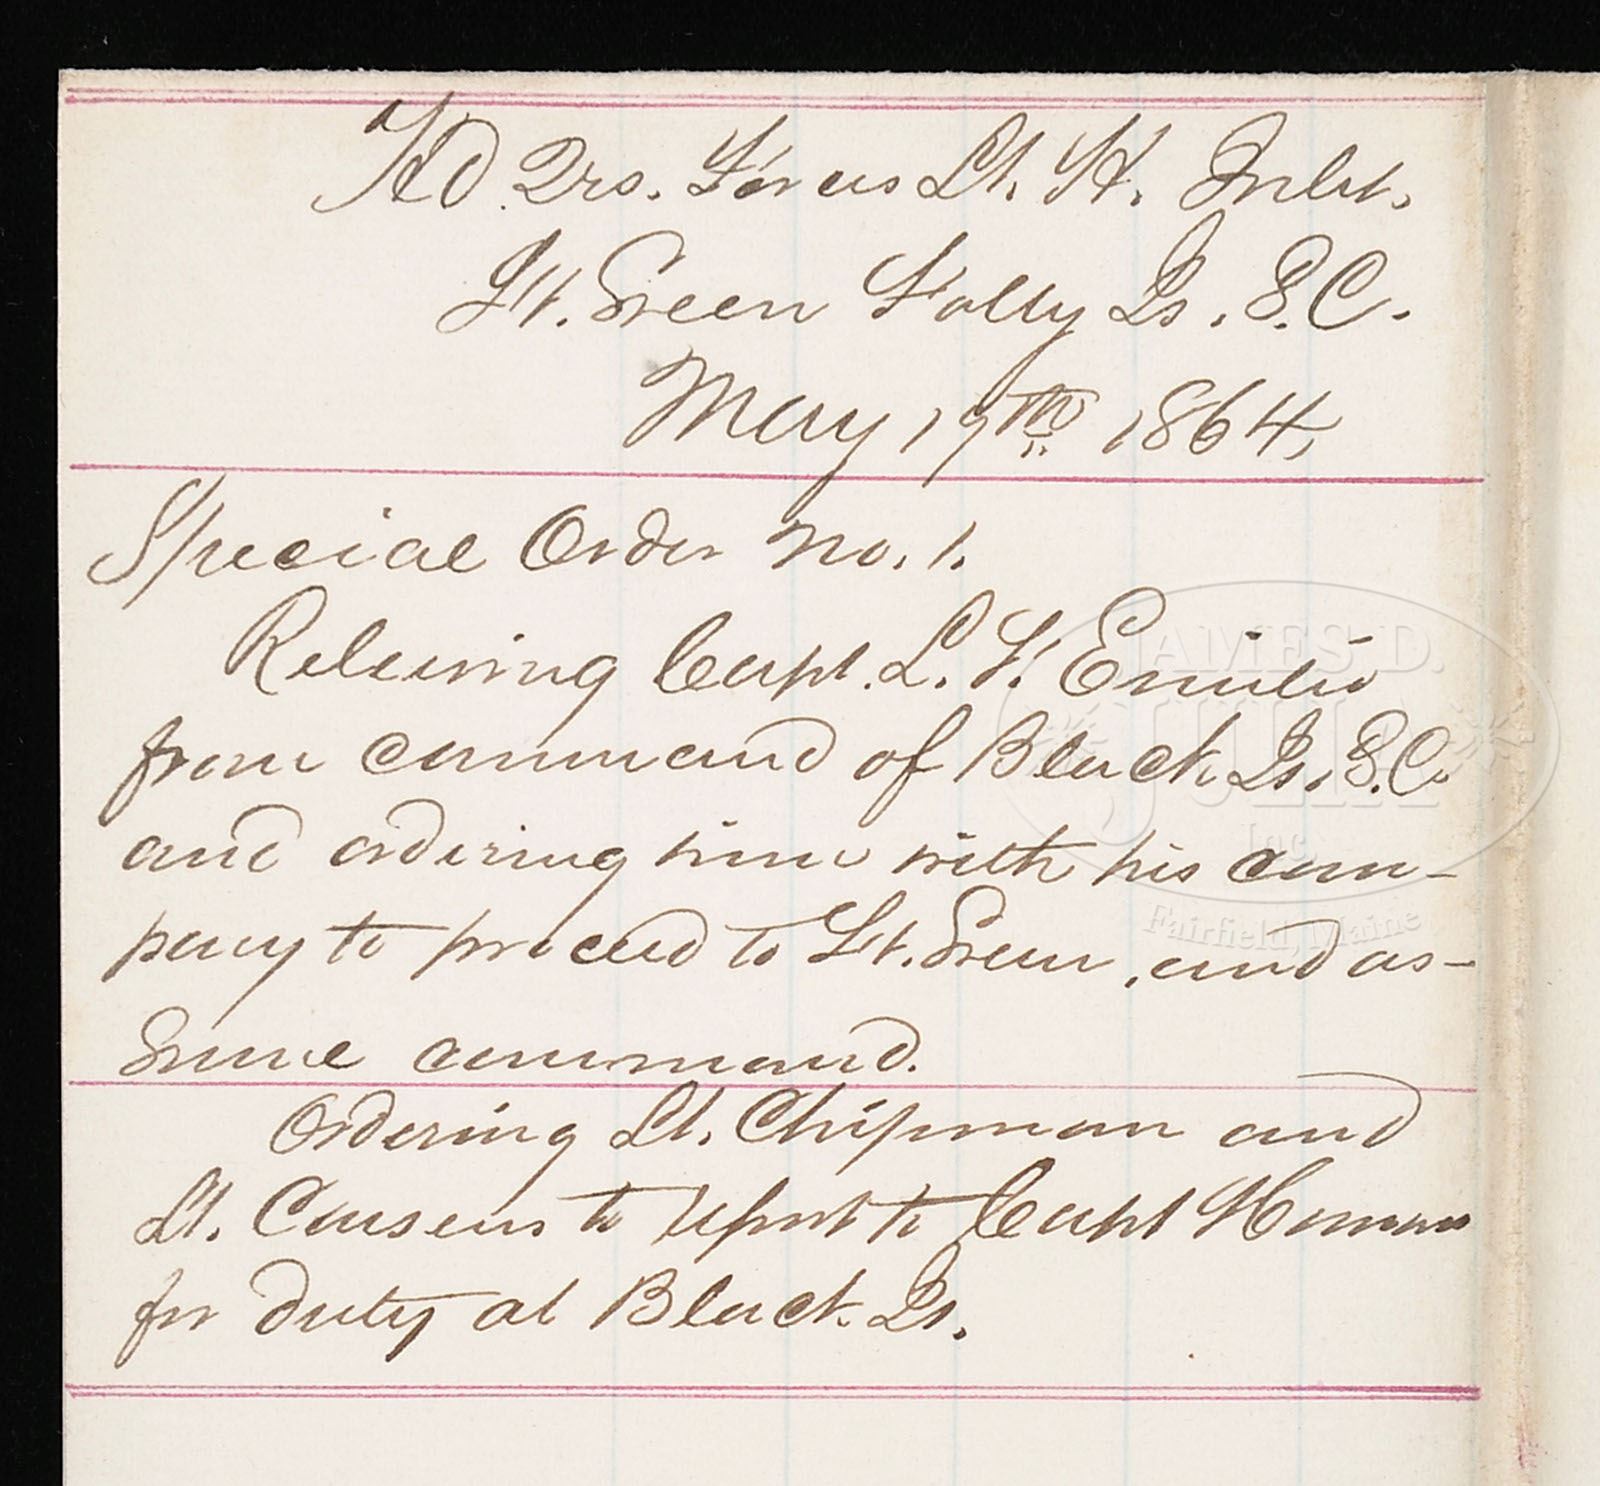 Hd Qrs. Forces Lt. H. Inlet.
Ft. Green Folly Is. S.C.
May 19th 1864,
Special Order No. 1.
Releiving Capt. L. F. Emilio
from command of Black Is. S.C.
and ordering him with his com-
pany to proceed to Ft. Green, and as-
sume command.
Ordering Lt. Chipman and
Lt. Cousens to report to Capt Homans
for duty at Black Is.
JAMES D.
JULIA
Inc.
Fairfield, Maine